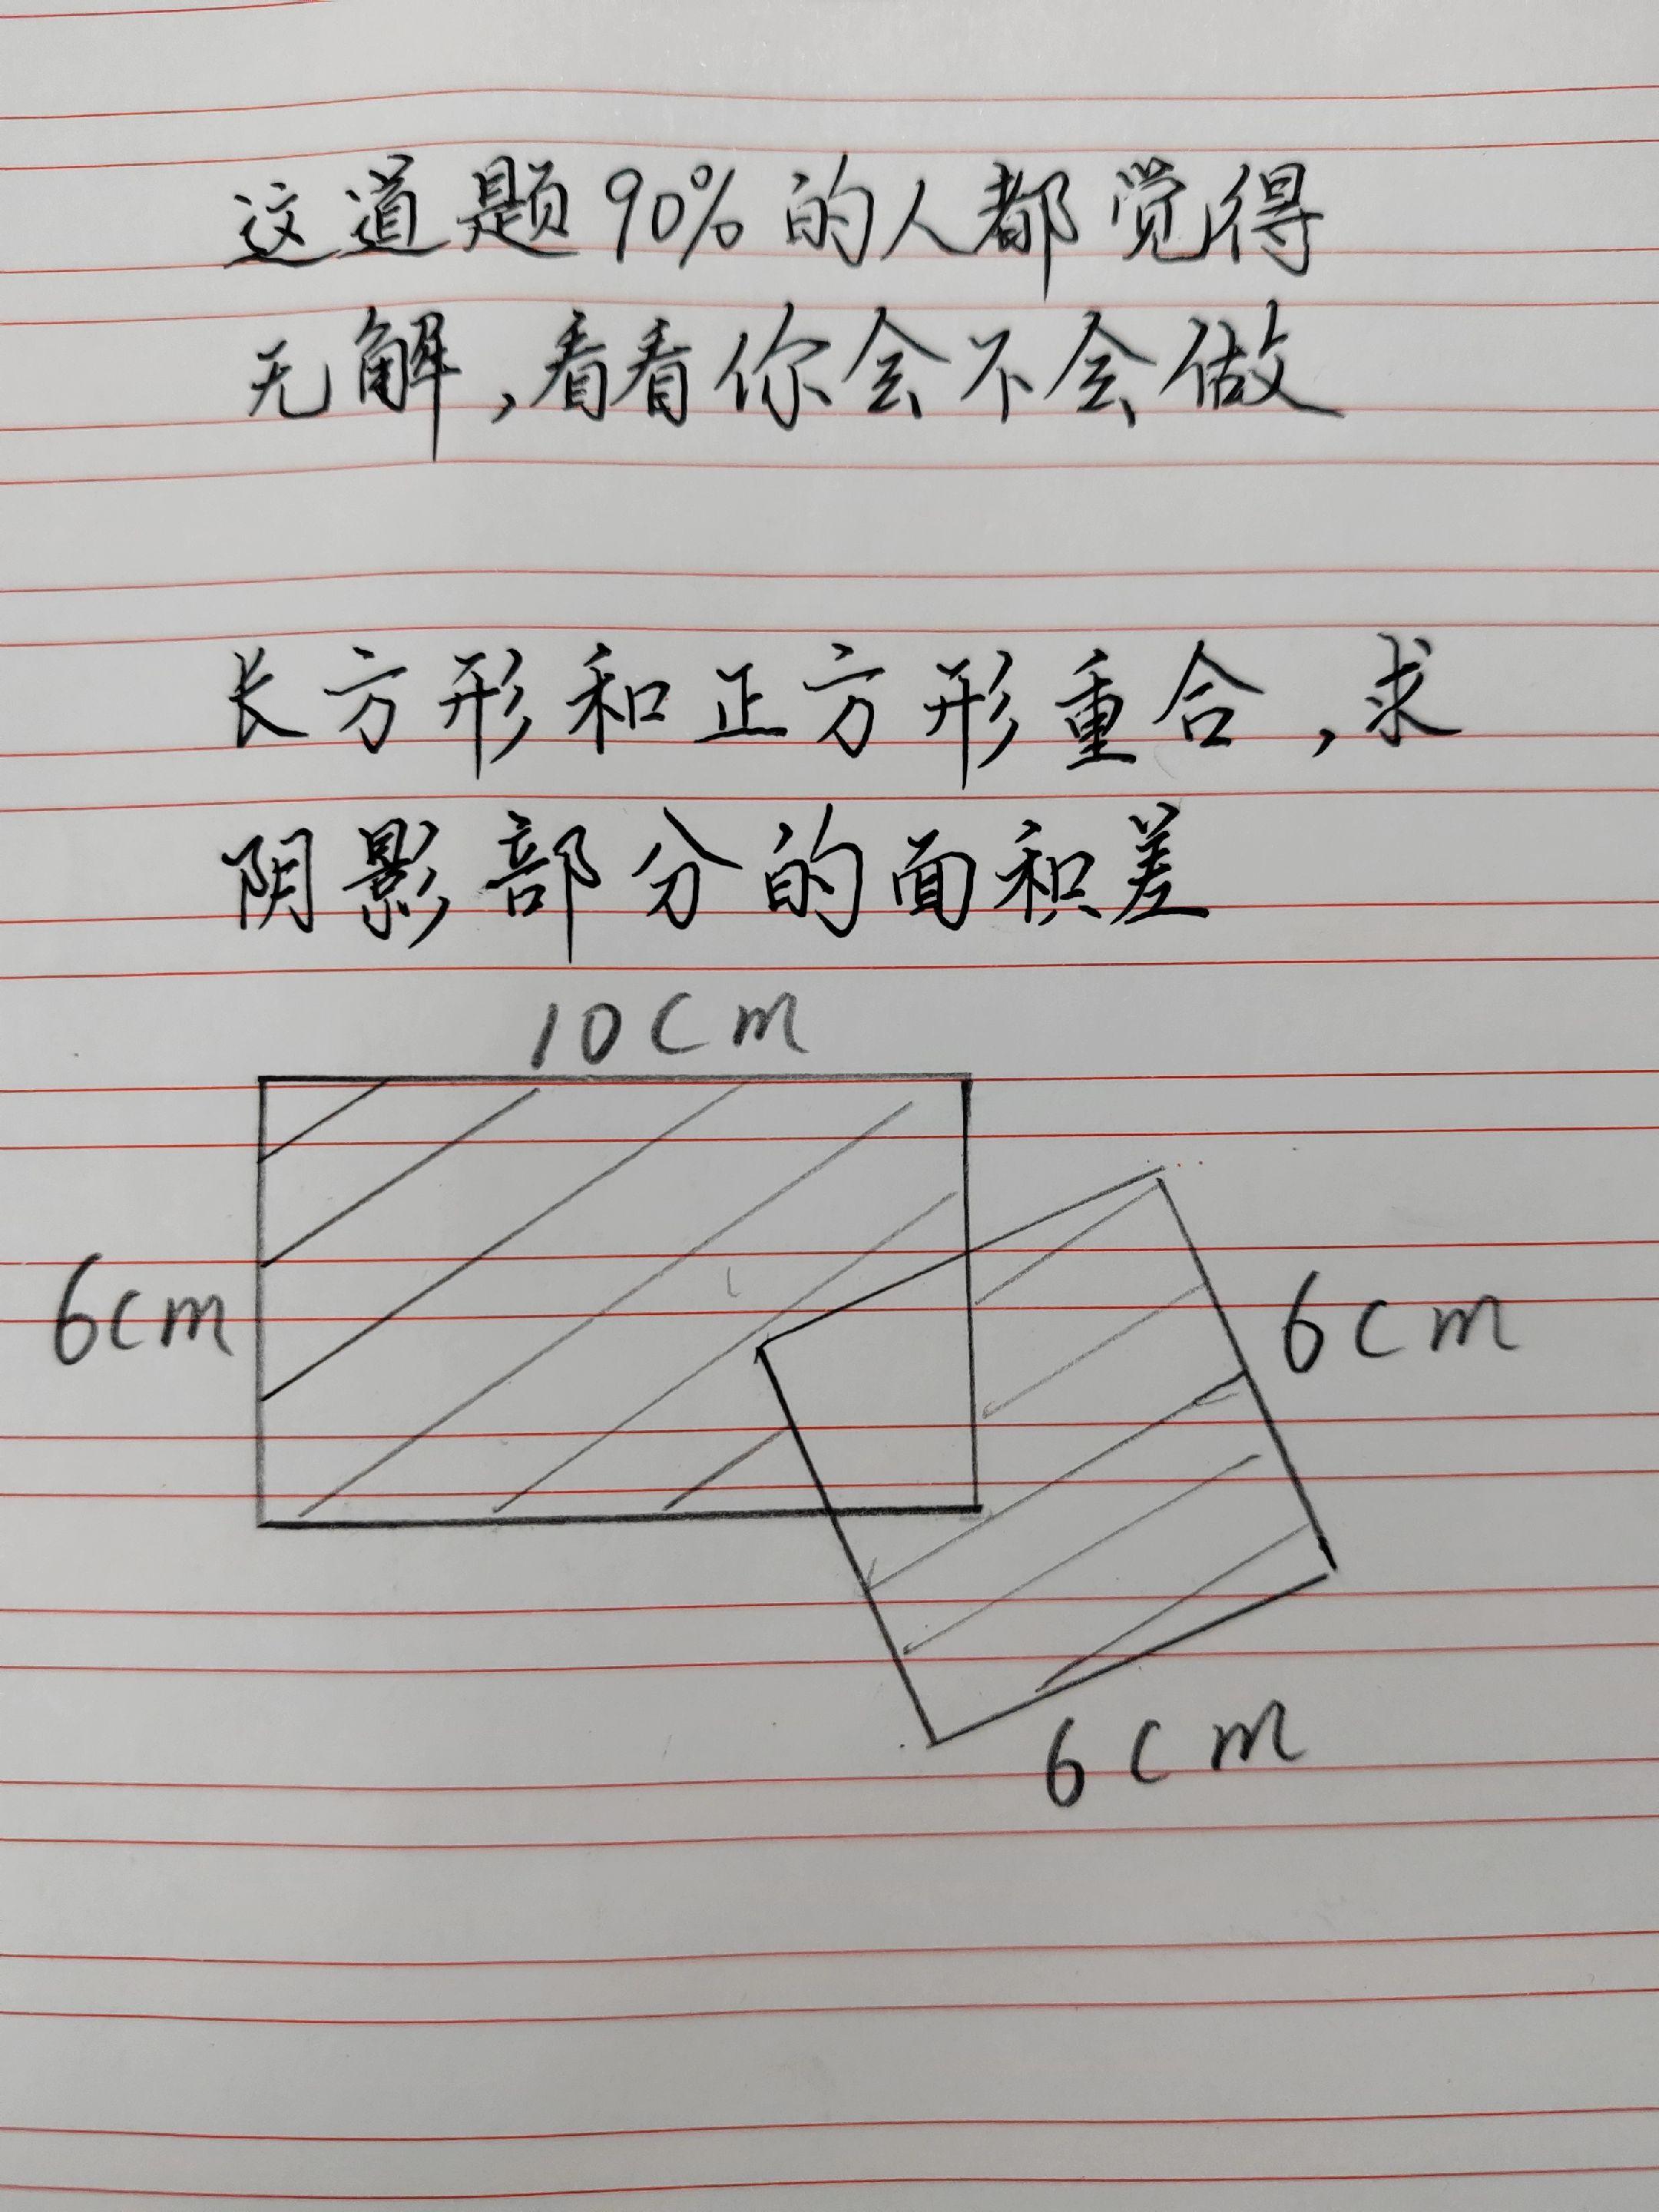 这道题90%的人都觉得
无解,看看你会不会做
长方形和正方形重合,求
阴影部分的面积差
10cm
6cm
6cm
6cm